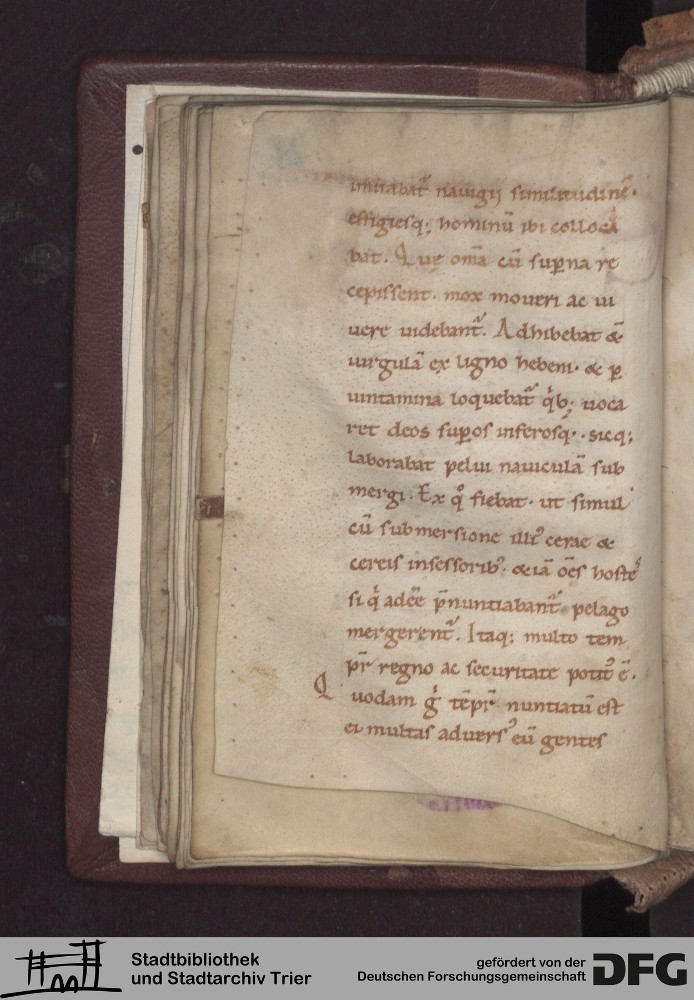 imitabat᷑ nauigij similitudinē·
effigiesq; hominū ibi colloca
bat. Que om̄a cū sup̱na re
cepissent· mox moueri ac ui
uere uidebant᷑. Adhibebat &
uirgulā ex ligno hebeni· & ꝑ
uintamina loquebat᷑ qͥb; uoca
ret deos suꝑos inferosq;· sicq;
laborabat pelui nauiculā sub
mergi. Ex qͦ fiebat· ut simul
cū submersione illiꝰ cerae &
cereis insessoribꝰ· & iā om̄s hoste
si qͥ adeē p̄nuntiabant᷑ pelago
mergerent᷑. Itaq; multo tem
pr̄ regno ac securitate potitꝰ ē·
Quodam gͥ tēpr̄ nuntiatū est
ei multas aduersꝰ eū gentes
Stadtbibliothek
und Stadtarchiv Trier
gefördert von der
Deutschen Forschungsgemeinschaft
DFG